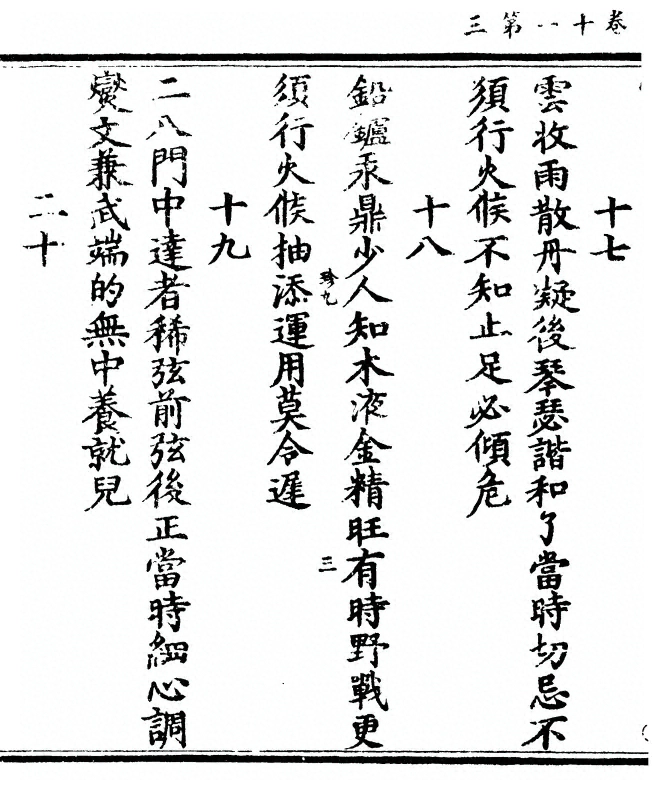 卷十一第三
十七
雲收雨散丹凝後琴瑟諧和了當時切忌不
須行火候不知止足必傾危
十八
鉛鑪汞鼎少人知木液金精旺有時野戰更
珍九
三
須行火候抽添運用莫令遲
十九
二八門中達者稀弦前弦後正當時細心調
爕文兼武端的無中養就兒
二十